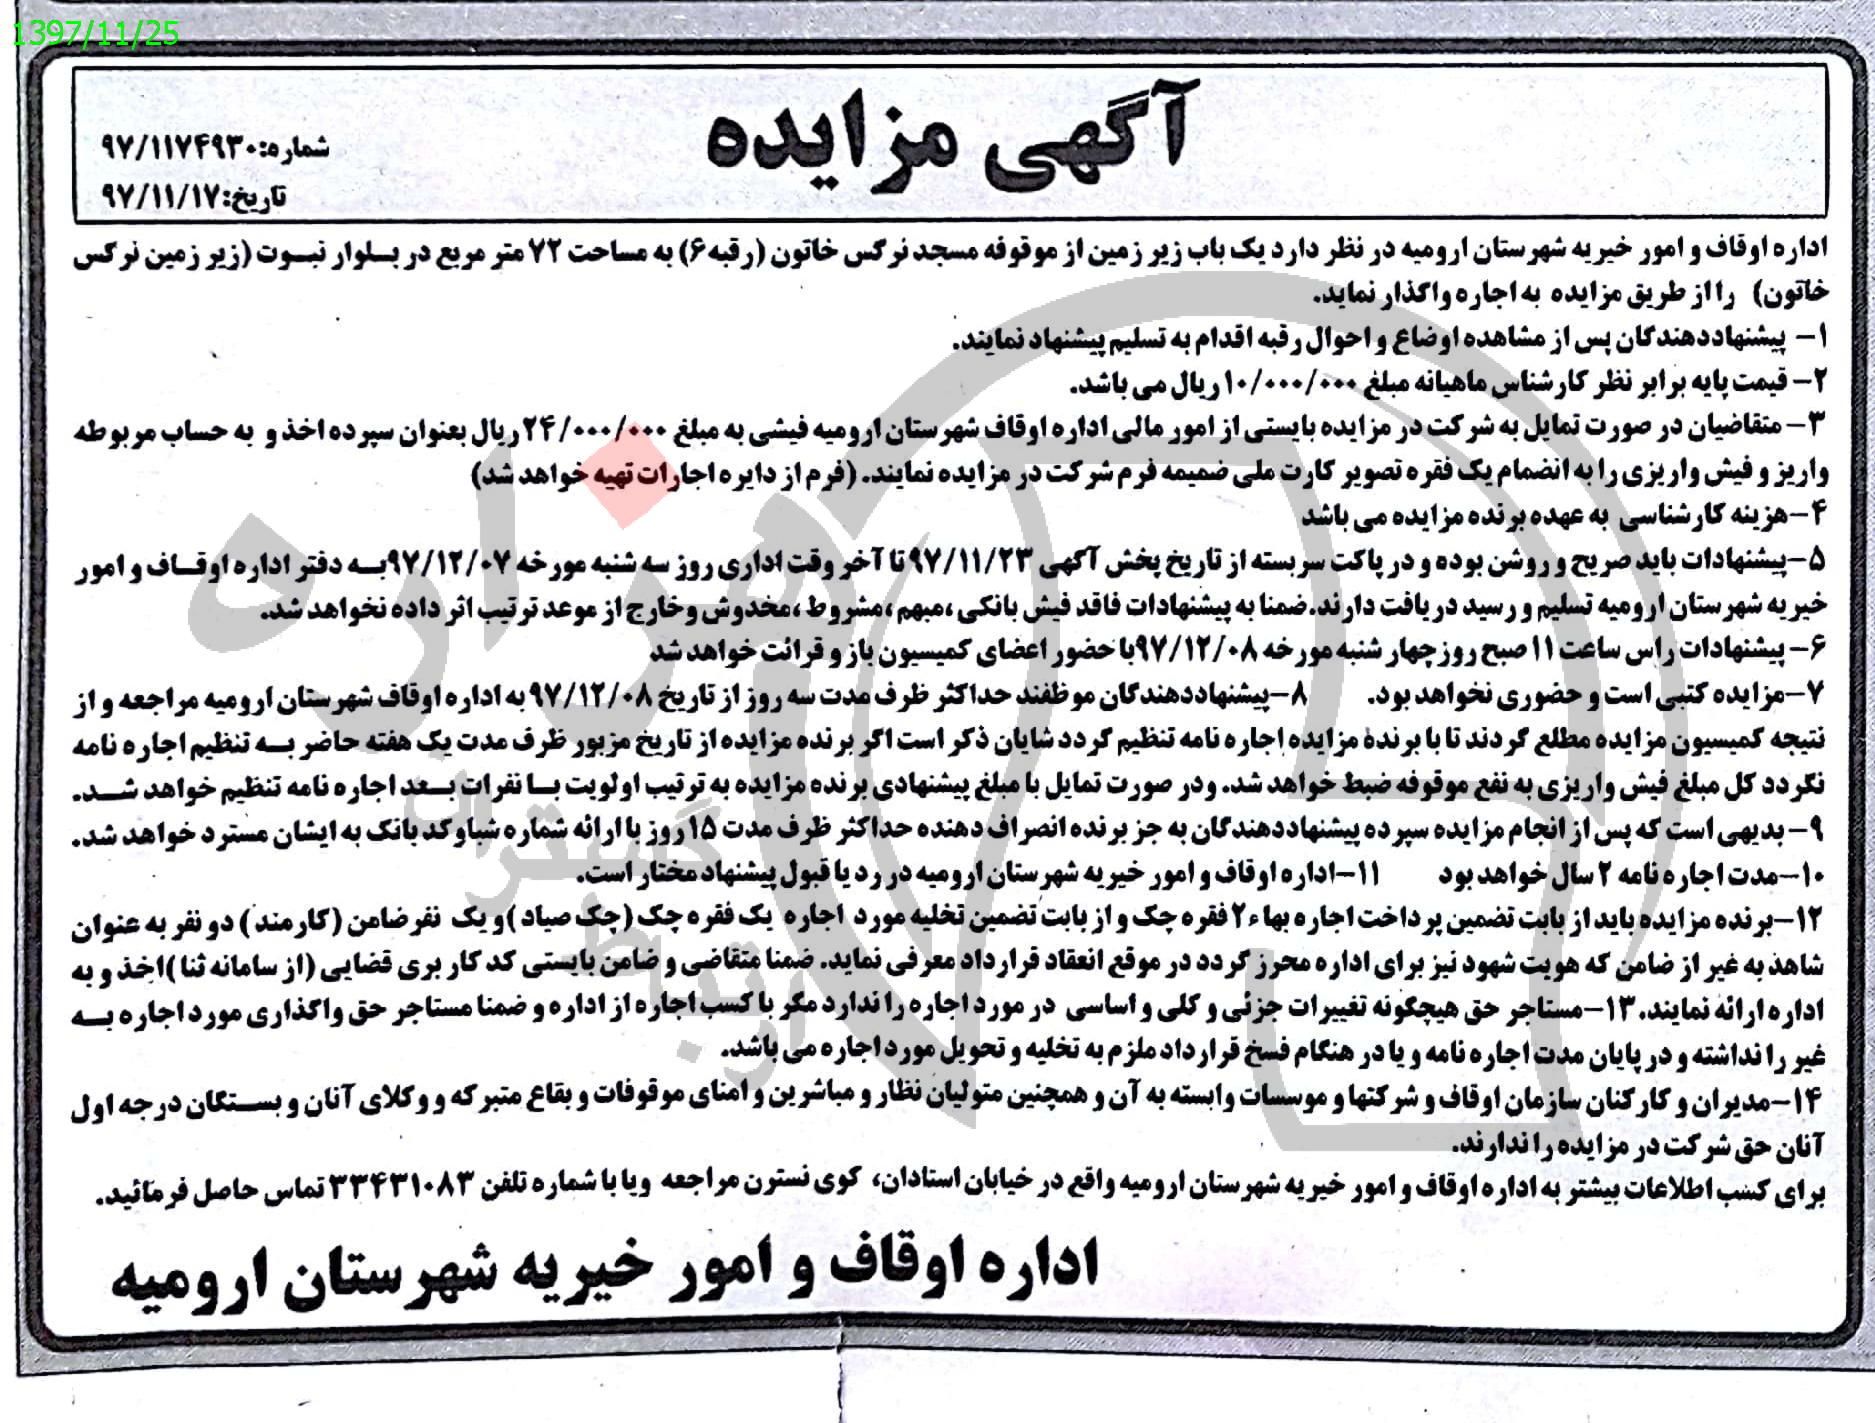 1397/11/25
آگهی مزایده
شماره:۹۷/۱۱۷۴۹۳۰
تاریخ:۹۷/۱۱/۱۷
اداره اوقاف و امور خیریه شهرستان ارومیه در نظر دارد یک باب زیر زمین از موقوفه مسجد نرگس خاتون (رقبه ۶) به مساحت ۷۲ متر مربع در بـلوار نبـوت (زیر زمین نرگس
خاتون) را از طریق مزایده به اجاره واگذار نماید.
۱- پیشنهاددهندگان پس از مشاهده اوضاع و احوال رقبه اقدام به تسلیم پیشنهاد نمایند.
۲- قیمت پایه برابر نظر کارشناس ماهیانه مبلغ ۱۰/۰۰۰/۰۰۰ ریال می باشد.
۳- متقاضیان در صورت تمایل به شرکت در مزایده بایستی از امور مالی اداره اوقاف شهرستان ارومیه فیشی به مبلغ ۲۴/۰۰۰/۰۰۰ ریال بعنوان سپرده اخذ و به حساب مربوطه
واریز و فیش واریزی را به انضمام یک فقره تصویر کارت ملی ضمیمه فرم شرکت در مزایده نمایند. (فرم از دایره اجارات تهیه خواهد شد)
۴-هزینه کارشناسی به عهده برنده مزایده می باشد
۵-پیشنهادات باید صریح و روشن بوده و در پاکت سربسته از تاریخ پخش آگهی ۹۷/۱۱/۲۳ تا آخر وقت اداری روز سه شنبه مورخه ۹۷/۱۲/۰۷بـه دفتر اداره اوقـاف و امور
خیریه شهرستان ارومیه تسلیم و رسید دریافت دارند.ضمنا به پیشنهادات فاقد فیش بانکی ،مبهم ،مشروط ،مخدوش وخارج از موعد ترتیب اثر داده نخواهد شد.
۶- پیشنهادات راس ساعت ۱۱ صبح روز چهار شنبه مورخه ۹۷/۱۲/۰۸با حضور اعضای کمیسیون باز و قرائت خواهد شد
۷-مزایده کتبی است و حضوری نخواهد بود. ۸-پیشنهاددهندگان موظفند حداکثر ظرف مدت سه روز از تاریخ ۹۷/۱۲/۰۸ به اداره اوقاف شهرستان ارومیه مراجعه و از
نتیجه کمیسیون مزایده مطلع گردند تا با برنده مزایده اجاره نامه تنظیم گردد شایان ذکر است اگر برنده مزایده از تاریخ مزبور ظرف مدت یک هفته حاضر بـه تنظیم اجاره نامه
نگردد کل مبلغ فیش واریزی به نفع موقوفه ضبط خواهد شد. ودر صورت تمایل با مبلغ پیشنهادی برنده مزایده به ترتیب اولویت بـا نفرات بـعد اجاره نامه تنظیم خواهد شـد.
۹- بدیهی است که پس از انجام مزایده سپرده پیشنهاددهندگان به جز برنده انصراف دهنده حداکثر ظرف مدت ۱۵ روز با ارائه شماره شبا وکد بانک به ایشان مسترد خواهد شد.
۱۰-مدت اجاره نامه ۲ سال خواهد بود ۱۱-اداره اوقاف و امور خیریه شهرستان ارومیه در رد یا قبول پیشنهاد مختار است.
۱۲-برنده مزایده باید از بابت تضمین پرداخت اجاره بهاء ۲ فقره چک و از بابت تضمین تخلیه مورد اجاره یک فقره چک (چک صیاد )و یک نفر ضامن (کارمند) دو نفر به عنوان
شاهد به غیر از ضامن که هویت شهود نیز برای اداره محرز گردد در موقع انعقاد قرارداد معرفی نماید. ضمنا متقاضی و ضامن بایستی کد کاربری قضایی (از سامانه ثنا)اخذ و به
اداره ارائه نمایند. ۱۳-مستاجر حق هیچگونه تغییرات جزئی و کلی و اساسی در مورد اجاره را ندارد مگر با کسب اجاره از اداره و ضمنا مستاجر حق واگذاری مورد اجاره بـه
غیر را نداشته و در پایان مدت اجاره نامه و یا در هنگام فسخ قرارداد ملزم به تخلیه و تحویل مورد اجاره می باشد.
۱۴-مدیران و کارکنان سازمان اوقاف و شرکتها و موسسات وابسته به آن و همچنین متولیان نظار و مباشرین و امنای موقوفات و بقاع متبرکه و وکلای آنان و بسـتگان درجه اول
آنان حق شرکت در مزایده را ندارند.
برای کسب اطلاعات بیشتر به اداره اوقاف و امور خیریه شهرستان ارومیه واقع در خیابان استادان، کوی نسترن مراجعه ویا با شماره تلفن ۳۳۴۳۱۰۸۳ تماس حاصل فرمائید.
اداره اوقاف و امور خیریه شهرستان ارومیه